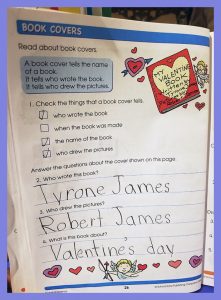 BOOK COVERS
Read about book covers.
A book cover tells the name
of a book.
It tells who wrote the book.
It tells who drew the pictures.
MY
VALENTINE
BOOK
1. Check the things that a book cover tells.
who wrote the book
when the book was made
the name of the book
who drew the pictures
Answer the questions about the cover shown on this page.
2. Who wrote this book?
Tyrone James
3. Who drew the pictures?
Robert James
4. What is this book about?
Valentines day
26